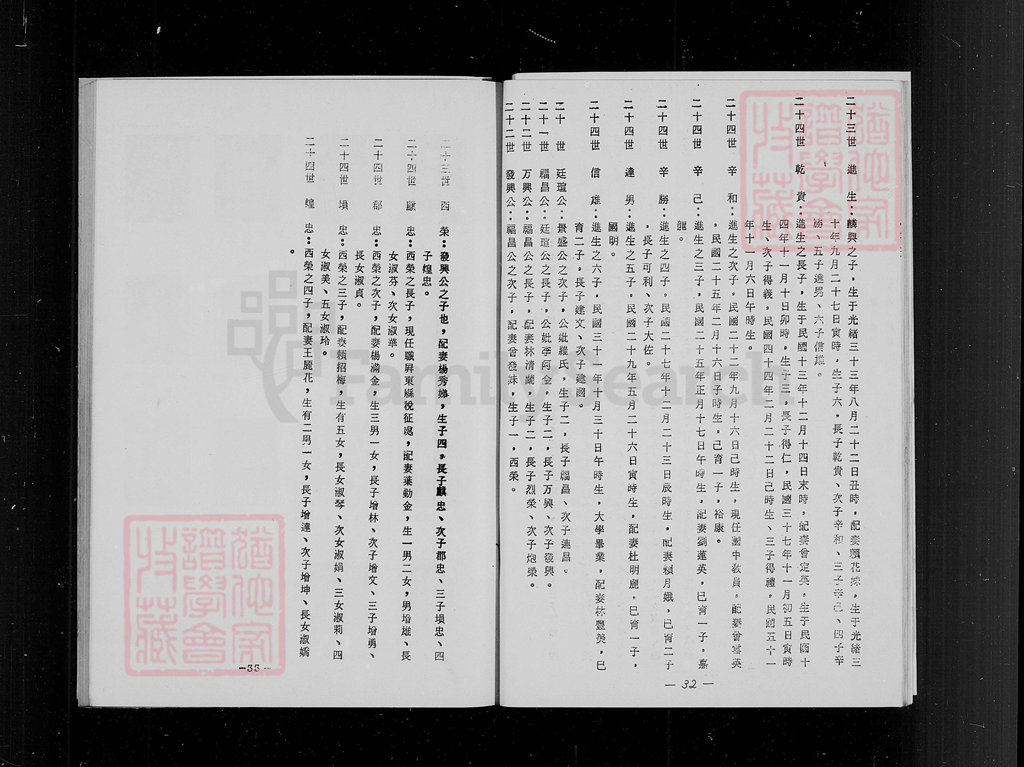 二十三世 進 生：麟興之子，生于光緒三十三年八月二十二日丑時，配妻賴花妹，生于光緒三
十年九月二十七日寅時，生子六，長子乾貴、次子辛和、三子辛己、四子辛
勝、五子達男、六子信雄。
二十四世 乾 貴：進生之長子，生于民國十三年十二月十四日末時，配妻曾定英，生于民國十
四年十一月十日卯時，生子三，長子得仁，民國三十七年十一月初五日寅時
生、次子得義，民國四十四年二月二十二日己時生、三子得禮，民國五十一
年十一月六日午時生。
二十四世 辛 和：進生之次子，民國二十二年九月十六日己時生，現任國中教員，配妻曾雲英
，民國二十五年二月十六日子時生，已育一子，裕康。
二十四世 辛 己：進生之三子，民國二十五年正月十七日午時生，配妻劉蓮英，已育一子，嘉
龍。
二十四世 辛 勝：進生之四子，民國二十七年十二月二十三日辰時生，配妻賴月娥，已育二子
，長子可利、次子大佐。
二十四世 達 男：進生之五子，民國二十九年五月二十六日寅時生，配妻杜明麗，已育一子，
國明。
二十四世 信 雄：進生之六子，民國三十一年十月三十日午時生，大學畢業，配妻林豐美，已
育二子，長子建文、次子建國。
二十 世 廷瑄公：景盛公之次子，公妣羅氏，生子二，長子福昌、次子連昌。
二十一世 福昌公：廷瑄公之長子，公妣李阿金，生子二，長子万興、次子發興。
二十二世 万興公：福昌公之長子，配妻林清蘭，生子二，長子烈榮、次子炮榮。
二十二世 發興公：福昌公之次子，配妻曾發妹，生子一，西榮。
— 32 —
二十三世 西 榮：發興公之子也，配妻楊秀娣，生子四，長子麒忠、次子郡忠、三子塤忠、四
子煌忠。
二十四世 麒 忠：西榮之長子，現任職屏東縣稅征處，配妻葉勤金，生一男二女，男增雄、長
女淑芬、次女淑華。
二十四世 郡 忠：西榮之次子，配妻楊滿金，生三男一女，長子增林、次子增文、三子增勇、
長女淑貞。
二十四世 塤 忠：西榮之三子，配妻賴招梅，生有五女，長女淑琴、次女淑娟、三女淑莉、四
女淑美、五女淑玲。
二十四世 煌 忠：西榮之四子，配妻王麗花，生有二男一女，長子增達、次子增坤、長女淑嬌
。
—33—
FamilySearch